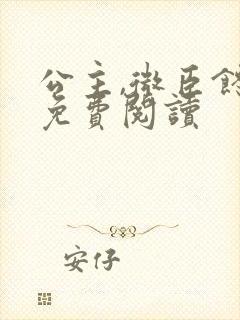 公主,微臣館
免費閱讀
安仔